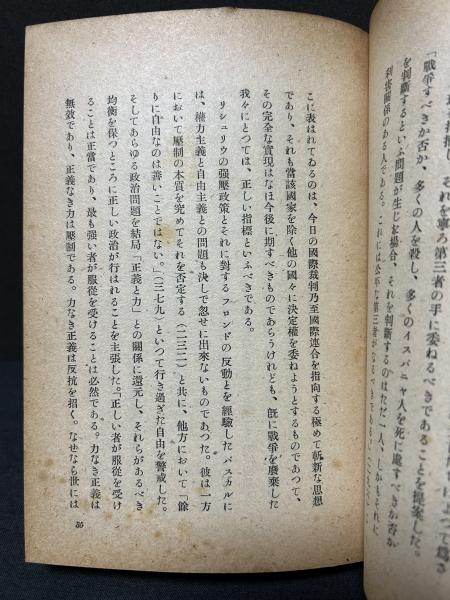 「戰爭すべきか否か、多くの人を殺し、多くのイスパニヤ人を死に處すべきか否か
を判斷するといふ問題が生じた場合、それを判斷するのはただ一人、しかもそれに
利害關係のある人である。これには公平な第三者が
それを寧ろ第三者の手に委ねるべきであることを提案した。
こに表はれてゐるのは、今日の國際裁判乃至國際連合を指向する極めて斬新な思想
であり、それも當該國家を除く他の國々に決定權を委ねようとするものであつて、
その完全な實現はなほ今後に期すべきものであらうけれども、旣に戰爭を廢棄した
我々にとつては、正しい指標といふべきである。
リシュリウの强壓政策とそれに對するフロンドの反動とを經驗したパスカルに
は、權力主義と自由主義との問題も決して忽せに出來ないものであつた。彼は一方
において壓制の本質を究めてそれを否定する(二三二)と共に、他方において「餘
りに自由なのは善いことではない。」(三七九)といつて行き過ぎた自由を警戒した。
そしてあらゆる政治問題を結局「正義と力」との關係に還元し、それらがあるべき
均衡を保つところに正しい政治が行はれることを主張した。「正しい者が服從を受け
ることは正當であり、最も强い者が服從を受けることは必然である。力なき正義は
無效であり、正義なき力は壓制である。力なき正義は反抗を招く。なぜなら世には
35